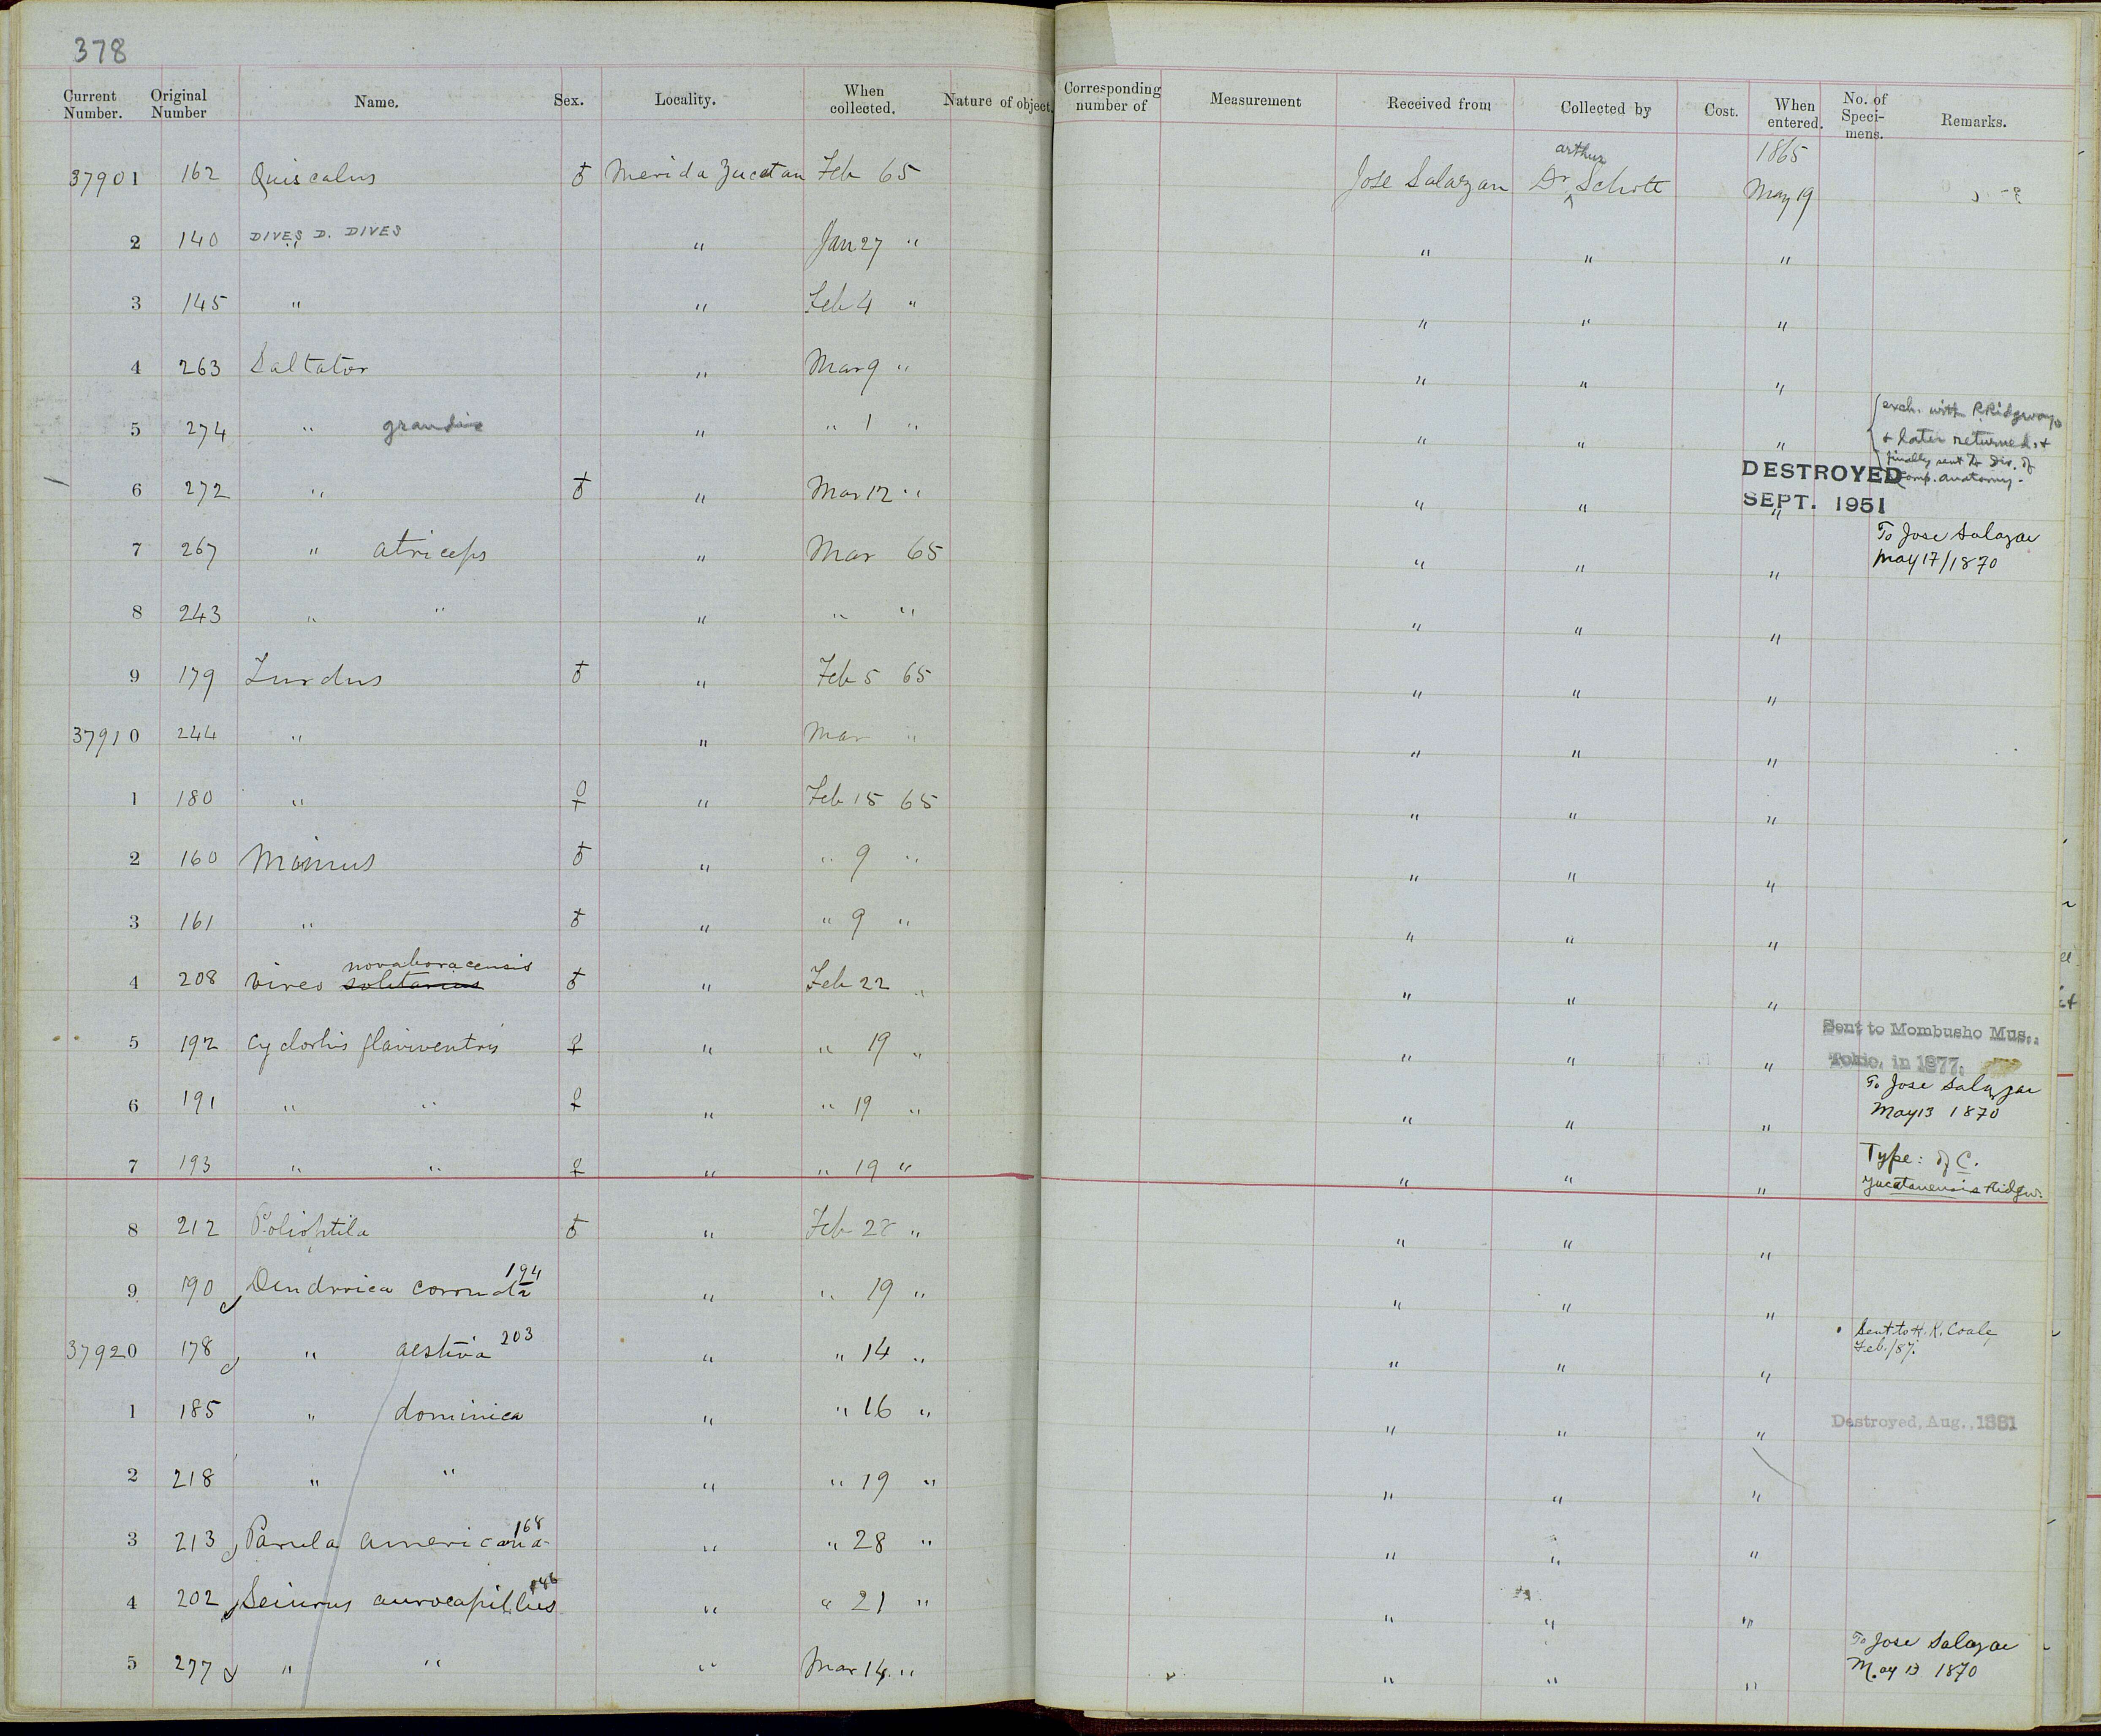 378
Current Number. Original Number Name. Sex. Locality. When collected. Nature of object. Corresponding number of Measurement Received from Collected by Cost. When entered. No. of Speci-mens. Remarks.
37901 162 Quiscalus ♂ Merida Yucatan Feb 65 Jose Salazar Dr arthur Schott 1865 May 19
2 140 DIVES D. DIVES " Jan 27 " " " "
3 145 " " Feb 4 " " " "
4 263 Saltator " Mar 9 " " " "
5 274 " grandis " " 1 " " " " exch. with R Ridgway & later returned, & finally sent to Div. of Comp. anatomy.
6 272 " ♂ " Mar 12 " " " " DESTROYED SEPT. 1951
7 267 " atriceps " Mar 65 " " " To Jose Salazar May 17/1870
8 243 " " " " " " " "
9 179 Turdus ♂ " Feb 5 65 " " "
37910 244 " " Mar " " " "
1 180 " ♀ " Feb 15 65 " " "
2 160 Mimus ♂ " " 9 " " " "
3 161 " ♂ " " 9 " " " "
4 208 Vireo solitarius novaboracensis ♂ " Feb 22 " " " "
5 192 Cyclorhis flaviventris ♀ " " 19 " " " " Sent to Mombusho Mus., Tokio, in 1877.
6 191 " " ♀ " " 19 " " " " To Jose Salazar May 13 1870
7 193 " " ♀ " " 19 " " " " Type: of C. yucatanensis Ridgw.
8 212 Polioptila ♂ " Feb 28 " " " "
9 190 Dendroica coronata 194 " " 19 " " " "
37920 178 " aestiva 203 " " 14 " " " " Sent to H. K. Coale, Feb./87.
1 185 " dominica " " 16 " " " " Destroyed, Aug., 1881
2 218 " " " " 19 " " " "
3 213 Parula americana 168 " " 28 " " " "
4 202 Seiurus aurocapillus 186 " " 21 " " " "
5 277 " " " Mar 14 " " " " To Jose Salazar May 13 1870